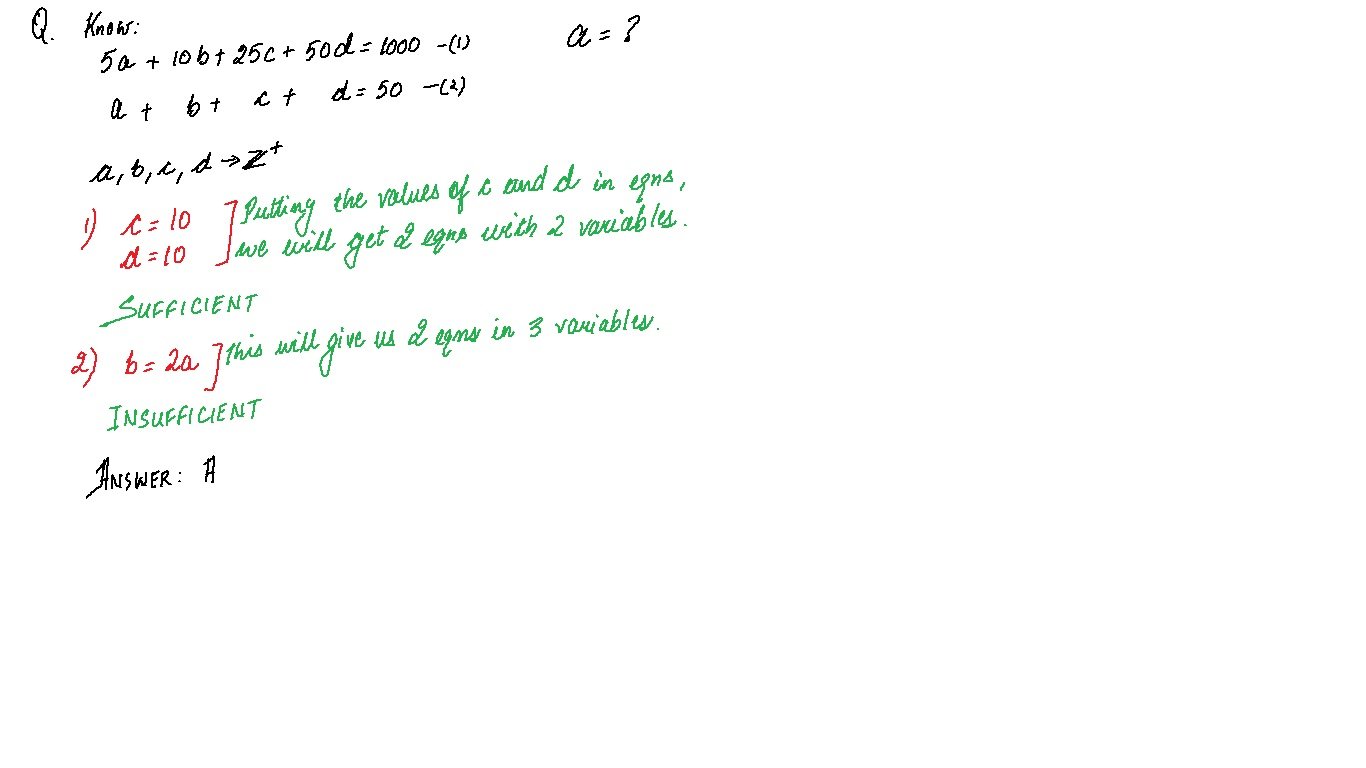 Q. Know: a = ?
5a + 10b + 25c + 50d = 1000 -(1)
a + b + c + d = 50 -(2)
a, b, c, d → Z⁺
1) c = 10 ] Putting the values of c and d in eqns,
d = 10 we will get 2 eqns with 2 variables.
SUFFICIENT
2) b = 2a ] This will give us 2 eqns in 3 variables.
INSUFFICIENT
ANSWER: A